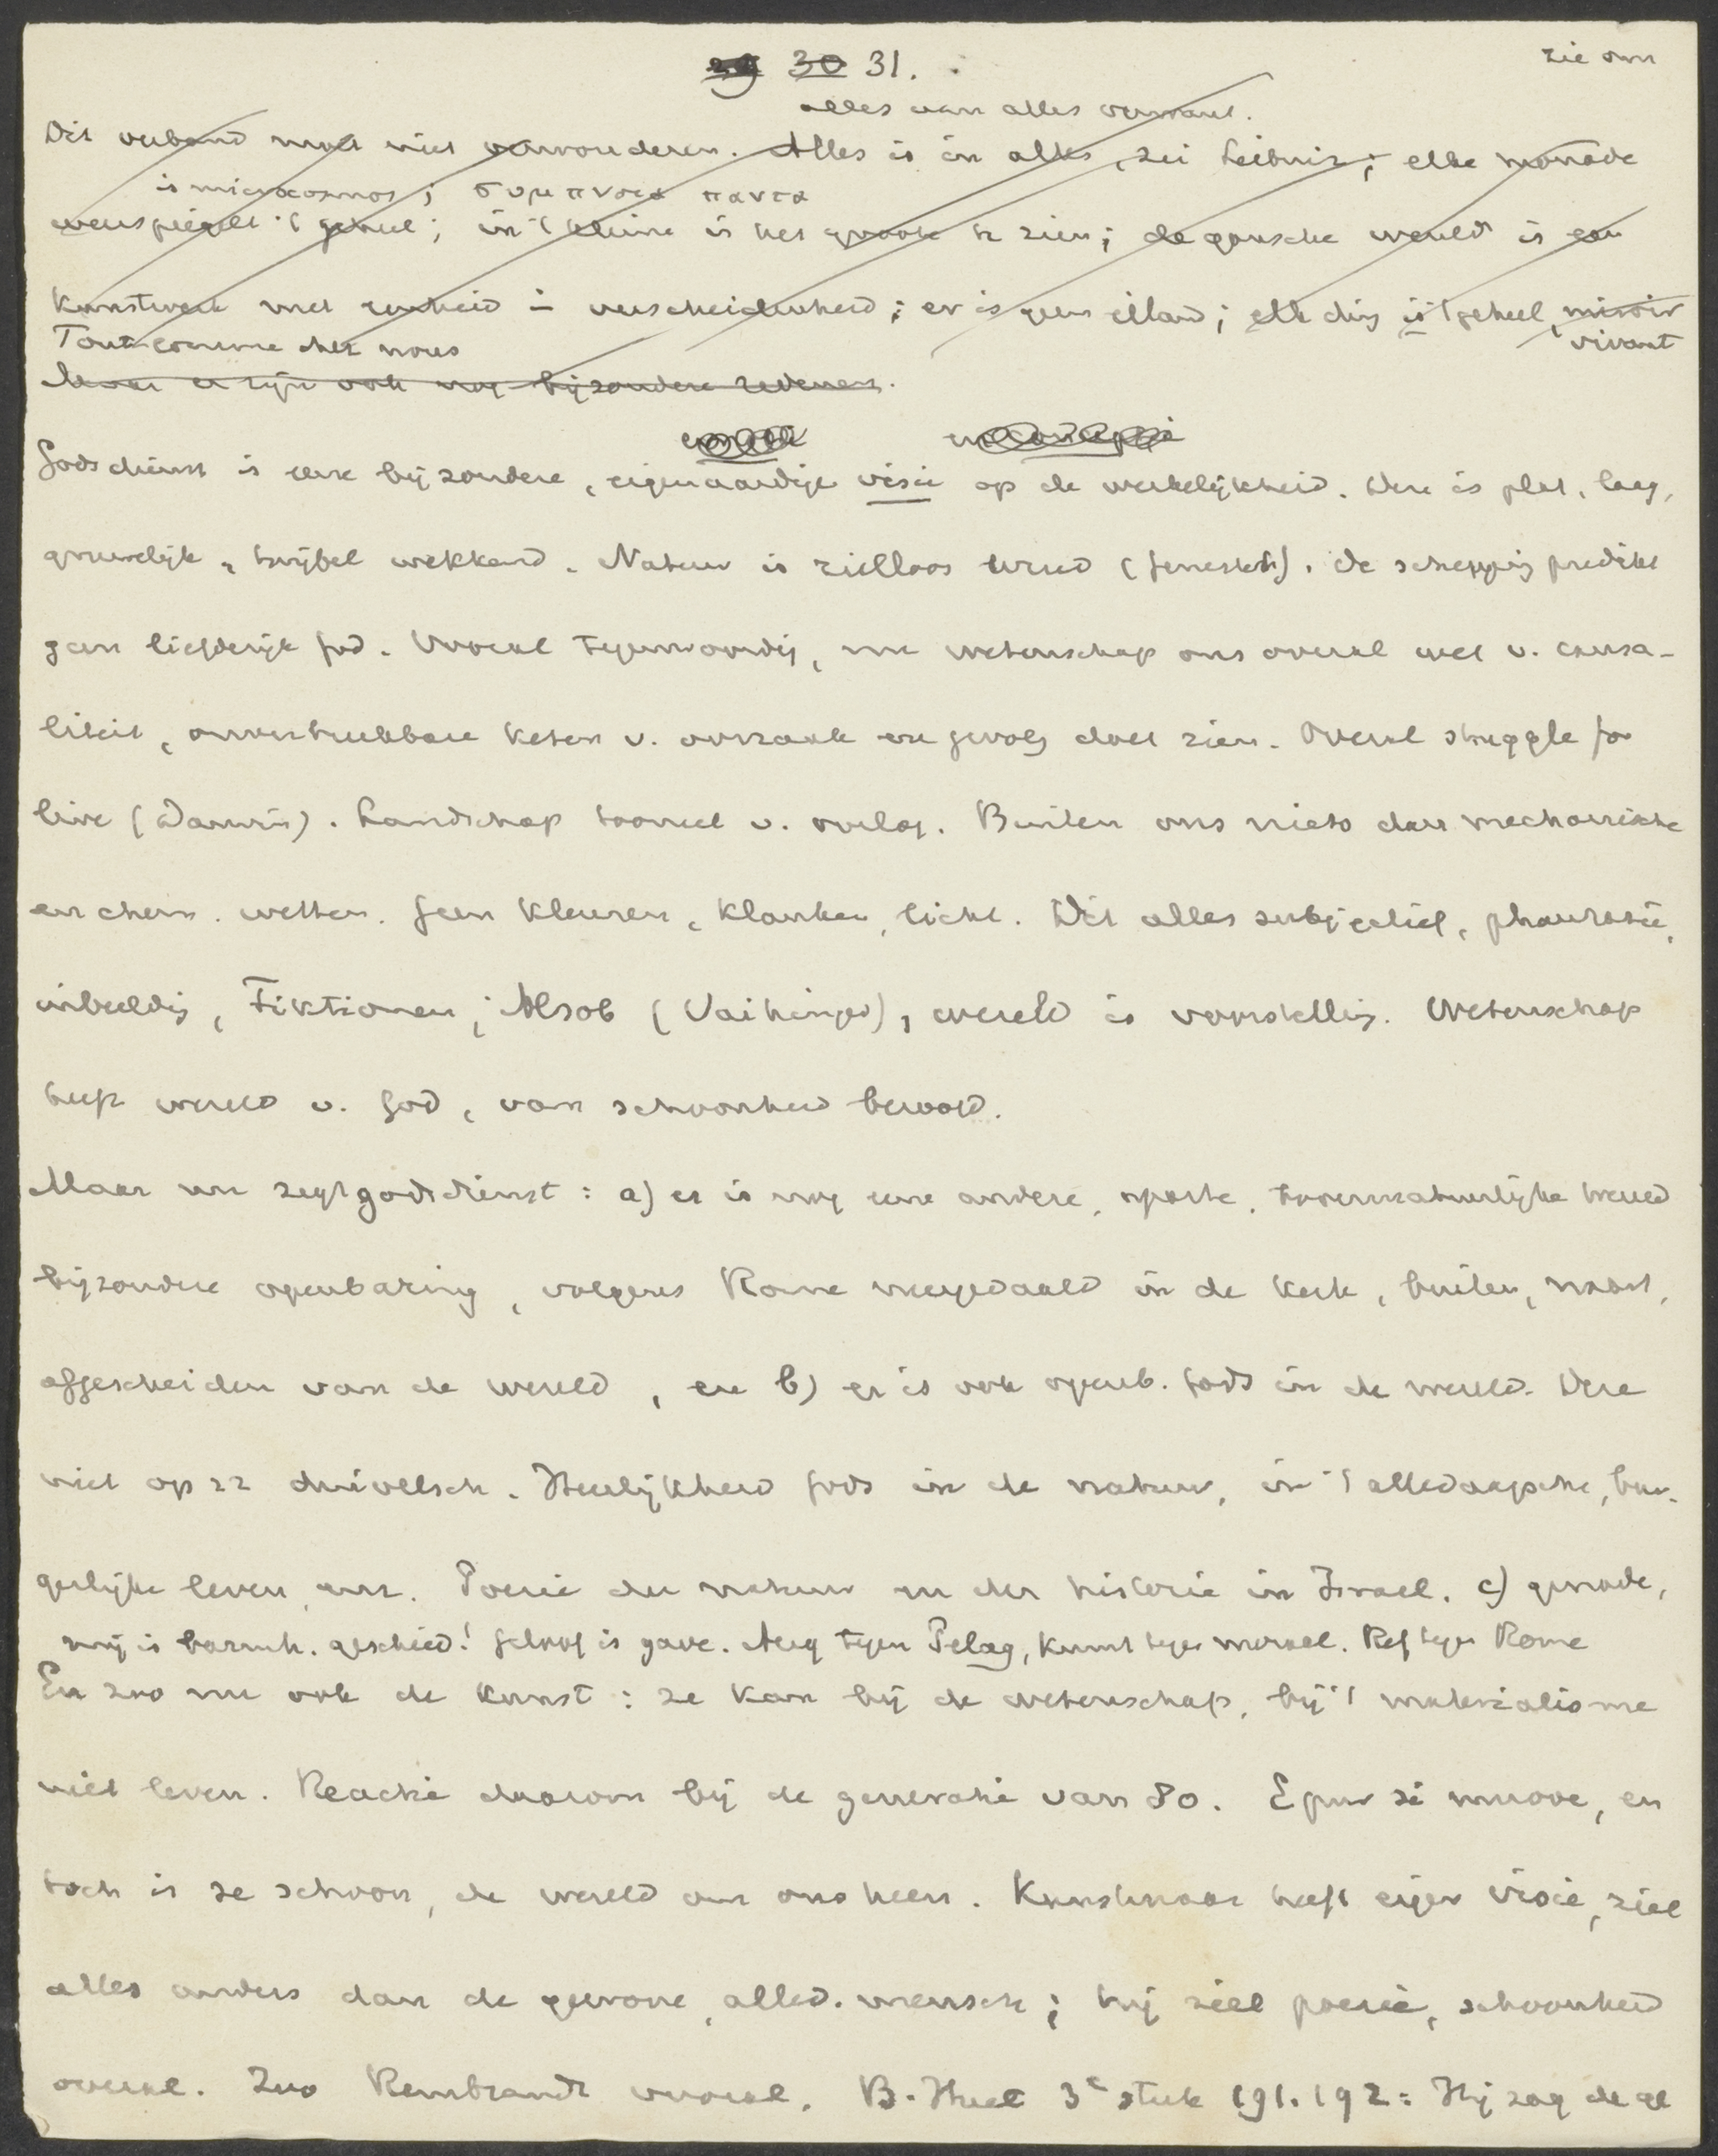 29 30 31.
zie om
alles van alles vervuld.
Dit verband moet niet verwonderen. Alles is in alles, zei Leibniz; elke monade
is microcosmos; συμπνοια παντα
weerspiegelt 't geheel; in 't kleine is het groote te zien; de gansche wereld is een
kunstwerk met eenheid in verscheidenheid; er is geen eiland; elk ding is 't geheel, miroir
vivant
Tout comme chez nous
Maar er zijn ook nog bijzondere redenen.
Godsdienst is eene bijzondere, eigenaardige visie op de werkelijkheid. Deze is plat, laag,
gruwelijk, twijfel wekkend. Natuur is zielloos wreed (Genestet). De schepping predikt
geen liefderijk God. Vooral tegenwoordig, nu wetenschap ons overal wet v. causa-
liteit, onverbreekbare keten v. oorzaak en gevolg doet zien. Overal struggle for
live (Darwin). Landschap tooneel v. oorlog. Buiten ons niets dan mechanische
en chem. wetten. Geen kleuren, klanken, licht. Dit alles subjectief, phantasie,
inbeeldig, Fiktionen, Alsob (Vaihinger), wereld is voorstellig. Wetenschap
heeft wereld v. God, van schoonheid beroofd.
Maar nu zegt godsdienst: a) er is nog eene andere, aparte, bovennatuurlijke wereld
bijzondere openbaring, volgens Rome neergedaald in de kerk, buiten, naast,
afgescheiden van de wereld, en b) er is ook openb. Gods in de wereld. Deze
niet op zz duivelsch. Heerlijkheid Gods in de natuur, in 't alledaagsche, bur-
gerlijke leven, enz. Poezie der natuur en der historie in Israel. c) genade,
mij is barmh. geschied! Geloof is gave. Aug tegen Pelag, kunst tegen moraal. Ref tegen Rome
En zoo nu ook de kunst: ze kan bij de wetenschap, bij 't materialisme
niet leven. Reactie daarom bij de generatie van 80. E pur si muove, en
toch is ze schoon, de wereld om ons heen. Kunstenaar heeft eigen visie, ziet
alles anders dan de gewone, alled. mensch; hij ziet poezie, schoonheid
overal. Zoo Rembrandt vooral. B. Huet 3e stuk 191.192: Hij zag de ge